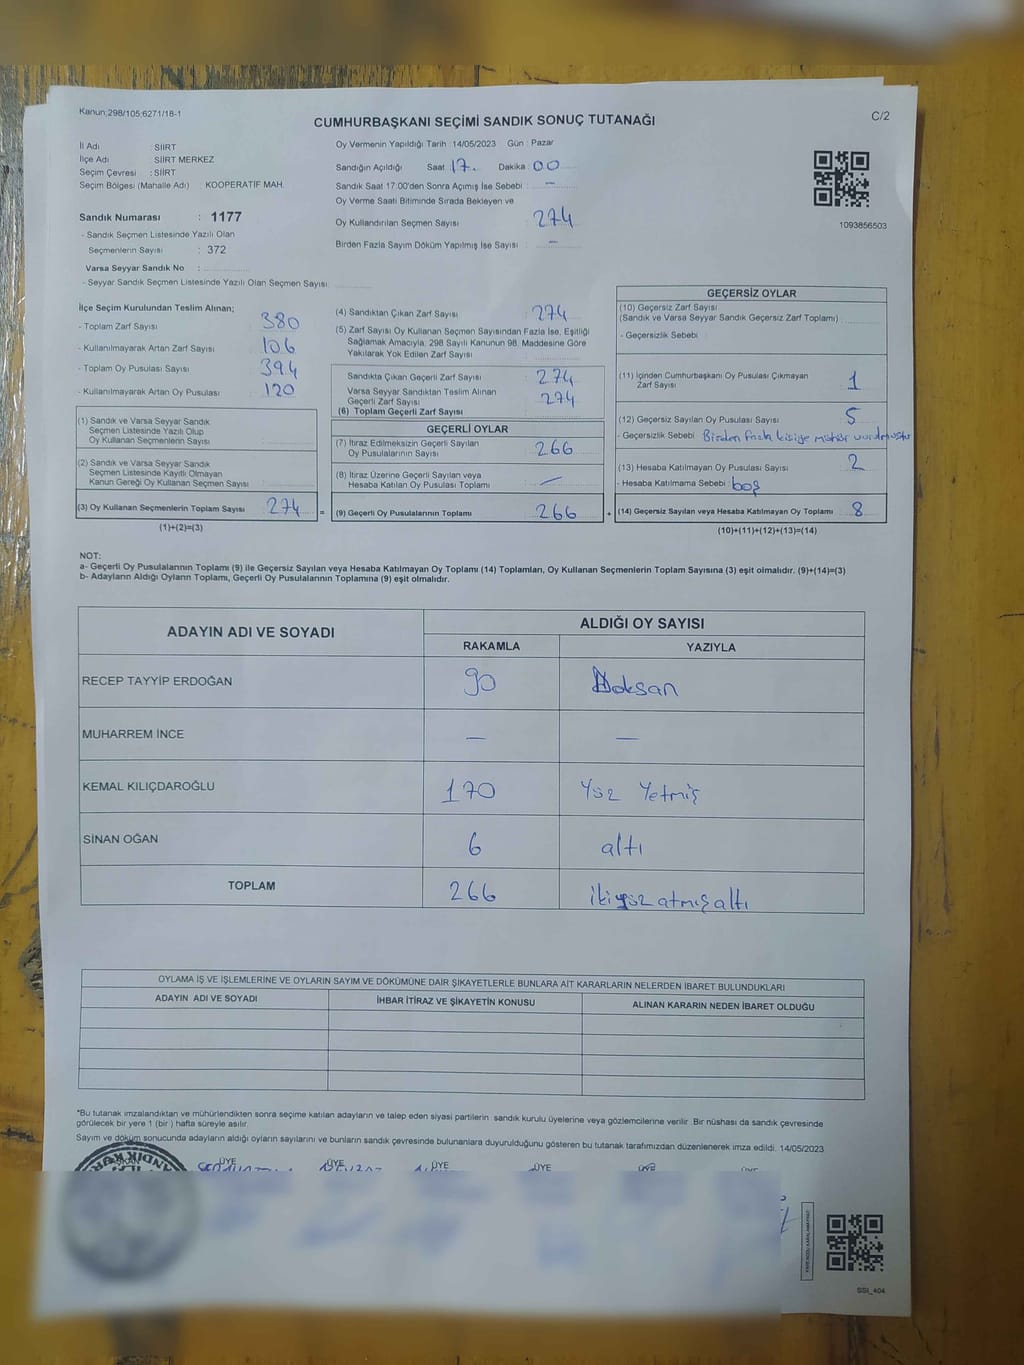 Kanun;298/105;6271/18-1
C/2
CUMHURBAŞKANI SEÇİMİ SANDIK SONUÇ TUTANAĞI
İl Adı : SİİRT
İlçe Adı : SİİRT MERKEZ
Seçim Çevresi : SİİRT
Seçim Bölgesi (Mahalle Adı) KOOPERATİF MAH.
Sandık Numarası : 1177
- Sandık Seçmen Listesinde Yazılı Olan
Seçmenlerin Sayısı : 372
Varsa Seyyar Sandık No :
- Seyyar Sandık Seçmen Listesinde Yazılı Olan Seçmen Sayısı :
Oy Vermenin Yapıldığı Tarih 14/05/2023 Gün : Pazar
Sandığın Açıldığı Saat 17. Dakika : 00
Sandık Saat 17:00'den Sonra Açımış İse Sebebi : —
Oy Verme Saati Bitiminde Sırada Bekleyen ve
Oy Kullandırılan Seçmen Sayısı : 274
Birden Fazla Sayım Döküm Yapılmış İse Sayısı : —
1093856503
İlçe Seçim Kurulundan Teslim Alınan;
- Toplam Zarf Sayısı : 380
- Kullanılmayarak Artan Zarf Sayısı : 106
- Toplam Oy Pusulası Sayısı : 394
- Kullanılmayarak Artan Oy Pusulası : 120
(1) Sandık ve Varsa Seyyar Sandık
Seçmen Listesinde Yazılı Olup
Oy Kullanan Seçmenlerin Sayısı :
(2) Sandık ve Varsa Seyyar Sandık
Seçmen Listesinde Kayıtlı Olmayan
Kanun Gereği Oy Kullanan Seçmen Sayısı :
(3) Oy Kullanan Seçmenlerin Toplam Sayısı : 274 =
(1)+(2)=(3)
(4) Sandıktan Çıkan Zarf Sayısı : 274
(5) Zarf Sayısı Oy Kullanan Seçmen Sayısından Fazla İse, Eşitliği
Sağlamak Amacıyla; 298 Sayılı Kanunun 98. Maddesine Göre
Yakılarak Yok Edilen Zarf Sayısı :
Sandıkta Çıkan Geçerli Zarf Sayısı : 274
Varsa Seyyar Sandıktan Teslim Alınan
Geçerli Zarf Sayısı : 274
(6) Toplam Geçerli Zarf Sayısı :
GEÇERLİ OYLAR
(7) İtiraz Edilmeksizin Geçerli Sayılan
Oy Pusulalarının Sayısı : 266
(8) İtiraz Üzerine Geçerli Sayılan veya
Hesaba Katılan Oy Pusulası Toplamı : —
(9) Geçerli Oy Pusulalarının Toplamı : 266 +
GEÇERSİZ OYLAR
(10) Geçersiz Zarf Sayısı
(Sandık ve Varsa Seyyar Sandık Geçersiz Zarf Toplamı) :
- Geçersizlik Sebebi :
(11) İçinden Cumhurbaşkanı Oy Pusulası Çıkmayan
Zarf Sayısı : 1
(12) Geçersiz Sayılan Oy Pusulası Sayısı : 5
- Geçersizlik Sebebi : Birden fazla kişiye mühür vurulmuştur
(13) Hesaba Katılmayan Oy Pusulası Sayısı : 2
- Hesaba Katılmama Sebebi : boş
(14) Geçersiz Sayılan veya Hesaba Katılmayan Oy Toplamı : 8
(10)+(11)+(12)+(13)=(14)
NOT:
a- Geçerli Oy Pusulalarının Toplamı (9) ile Geçersiz Sayılan veya Hesaba Katılmayan Oy Toplamı (14) Toplamları, Oy Kullanan Seçmenlerin Toplam Sayısına (3) eşit olmalıdır. (9)+(14)=(3)
b- Adayların Aldığı Oyların Toplamı, Geçerli Oy Pusulalarının Toplamına (9) eşit olmalıdır.
ADAYIN ADI VE SOYADI
ALDIĞI OY SAYISI
RAKAMLA YAZIYLA
RECEP TAYYİP ERDOĞAN 90 Doksan
MUHARREM İNCE — —
KEMAL KILIÇDAROĞLU 170 Yüz Yetmiş
SİNAN OĞAN 6 altı
TOPLAM 266 ikiyüz atmış altı
OYLAMA İŞ VE İŞLEMLERİNE VE OYLARIN SAYIM VE DÖKÜMÜNE DAİR ŞİKAYETLERLE BUNLARA AİT KARARLARIN NELERDEN İBARET BULUNDUKLARI
ADAYIN ADI VE SOYADI İHBAR İTİRAZ VE ŞİKAYETİN KONUSU ALINAN KARARIN NEDEN İBARET OLDUĞU
*Bu tutanak imzalandıktan ve mühürlendikten sonra seçime katılan adayların ve talep eden siyasi partilerin sandık kurulu üyelerine veya gözlemcilerine verilir. Bir nüshası da sandık çevresinde
görülecek bir yere 1 (bir) hafta süreyle asılır.
Sayım ve döküm sonucunda adayların aldığı oyların sayılarını ve bunların sandık çevresinde bulunanlara duyurulduğunu gösteren bu tutanak tarafımızdan düzenlenerek imza edildi. 14/05/2023
BAŞKAN ÜYE ÜYE ÜYE ÜYE ÜYE ÜYE
SSI_404